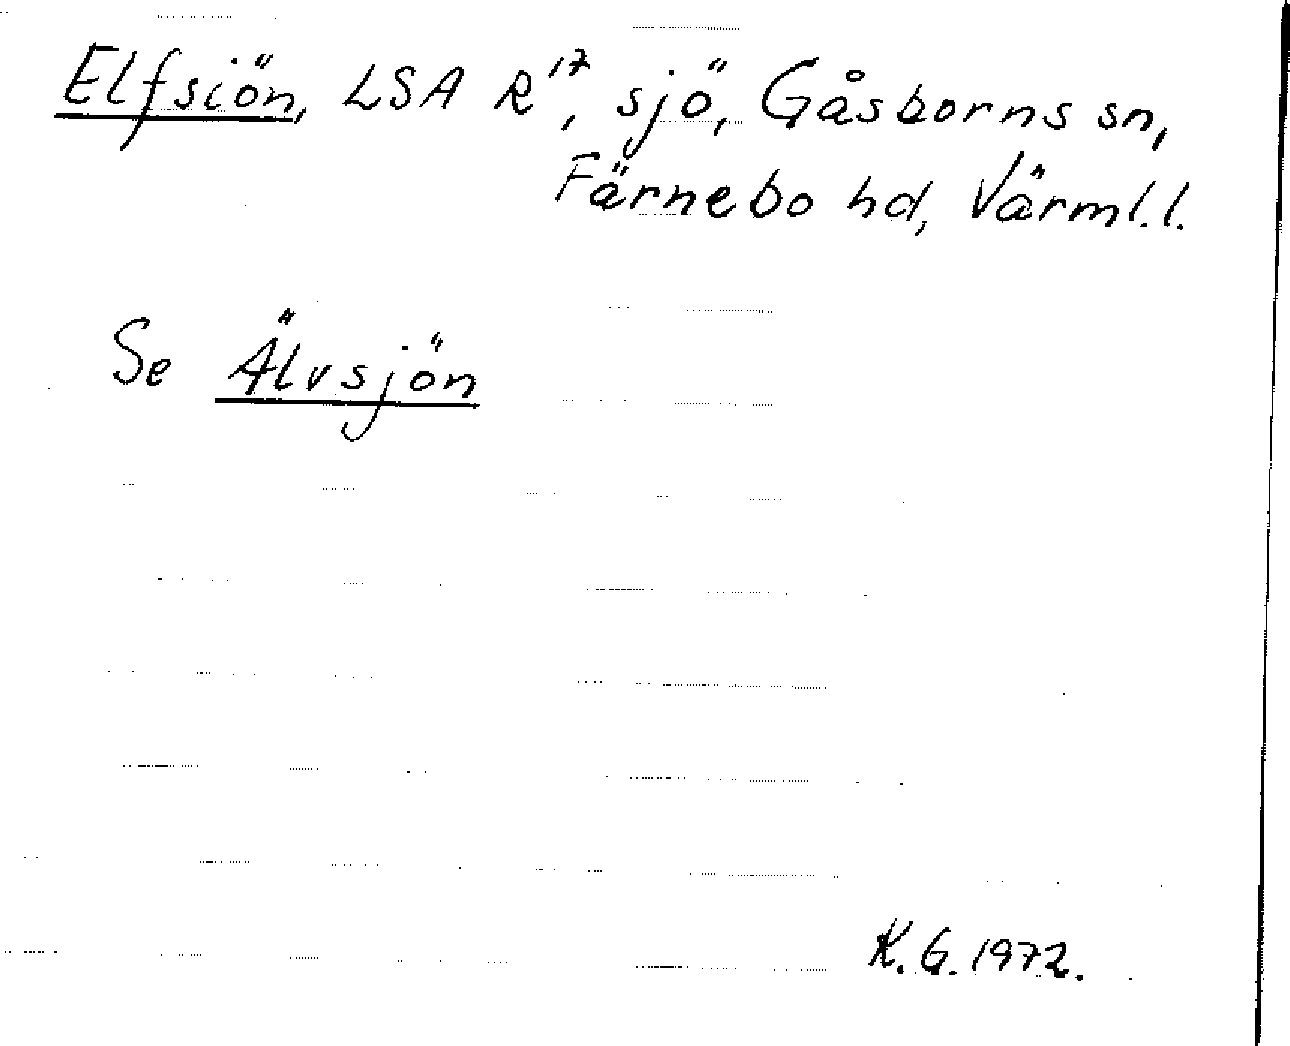 Elfsiön, LSA R¹⁷, sjö, Gåsborns sn,
Färnebo hd, Värml. l.
Se Älvsjön
K. G. 1972.